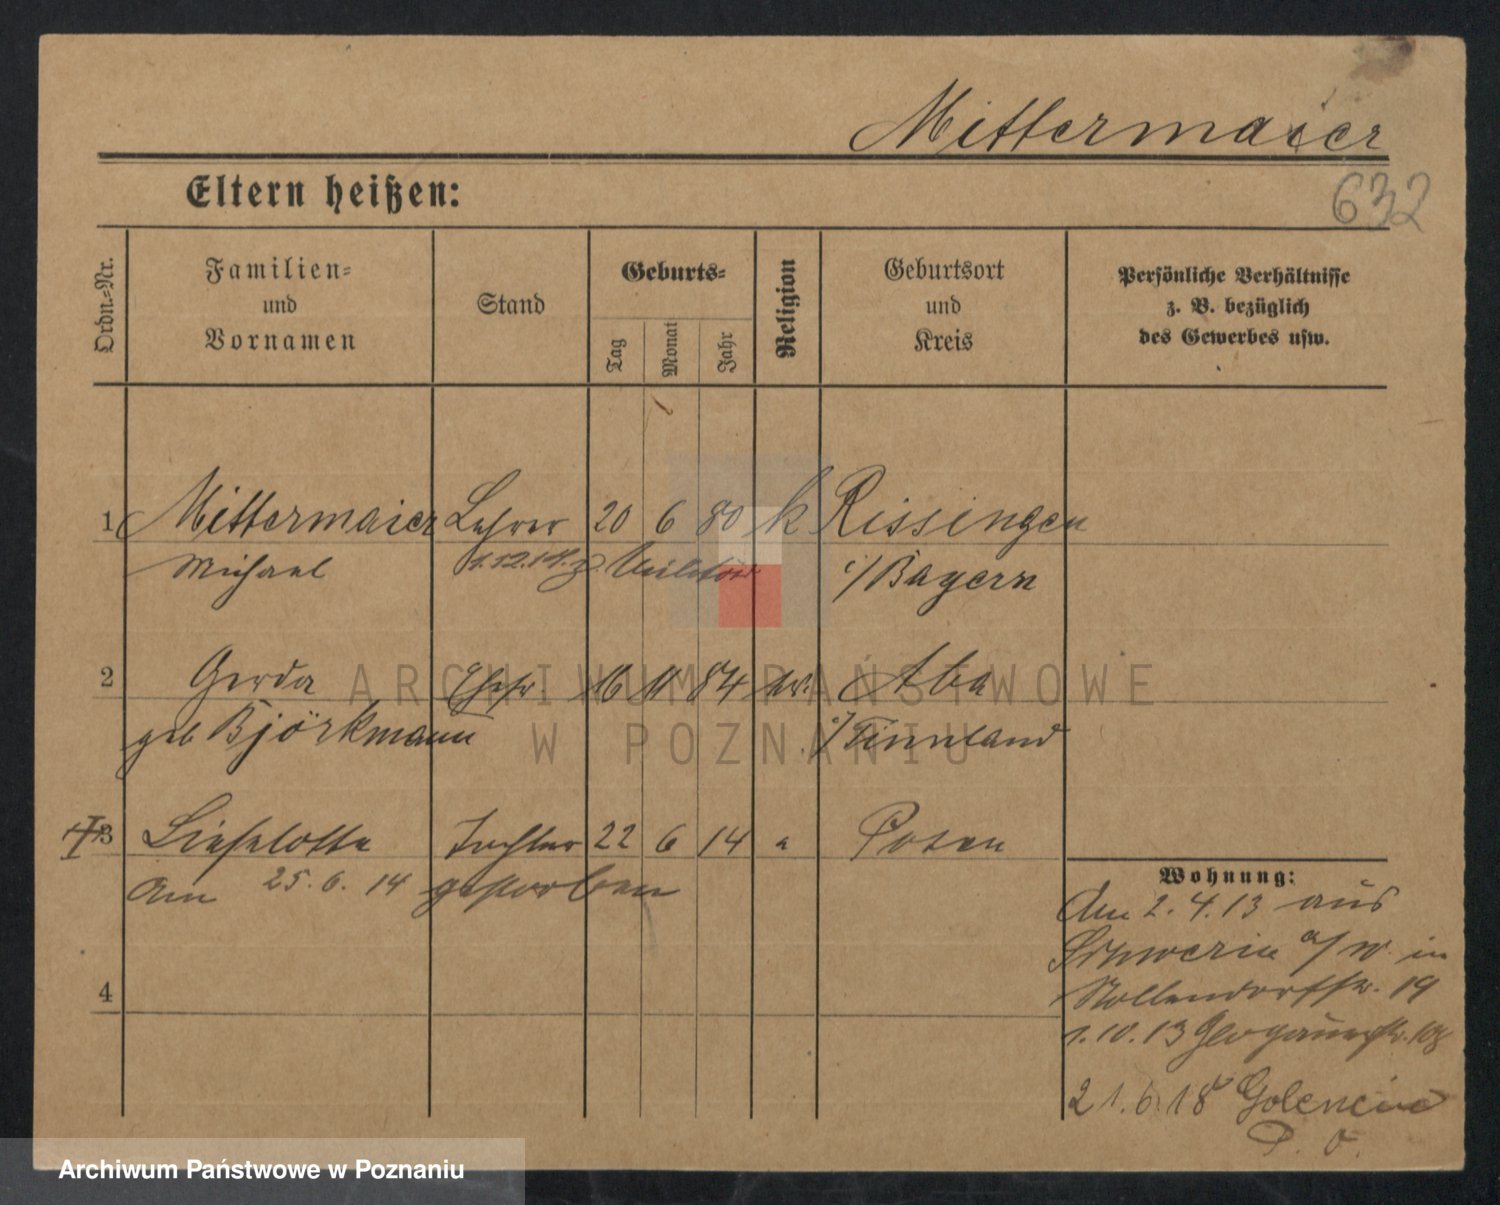 Mittermaier
632
Eltern heißen:
Ordn.-Nr.
Familien- und Vornamen
Stand
Geburts-
Tag
Monat
Jahr
Religion
Geburtsort und Kreis
Persönliche Verhältnisse z. B. bezüglich des Gewerbes usw.
1 Mittermaier Lehrer 20 6 80 k Rissingen
Michael 1.12.14. z. Militär i/Bayern
2 Gerda Ehefr. 16 11 84 Abo
geb Björkmann i/Finnland
3 Lieselotte Tochter 22 6 14 Posen
Am 25. 6. 14 gestorben
4
Wohnung:
Am 2. 4. 13 aus
Schwerin a/W. in
Nollendorfstr. 19
1. 10. 13 Glogauerstr. 108
21. 6. 18 Golencin
P. O.
ARCHIWUM PAŃSTWOWE
W POZNANIU
Archiwum Państwowe w Poznaniu